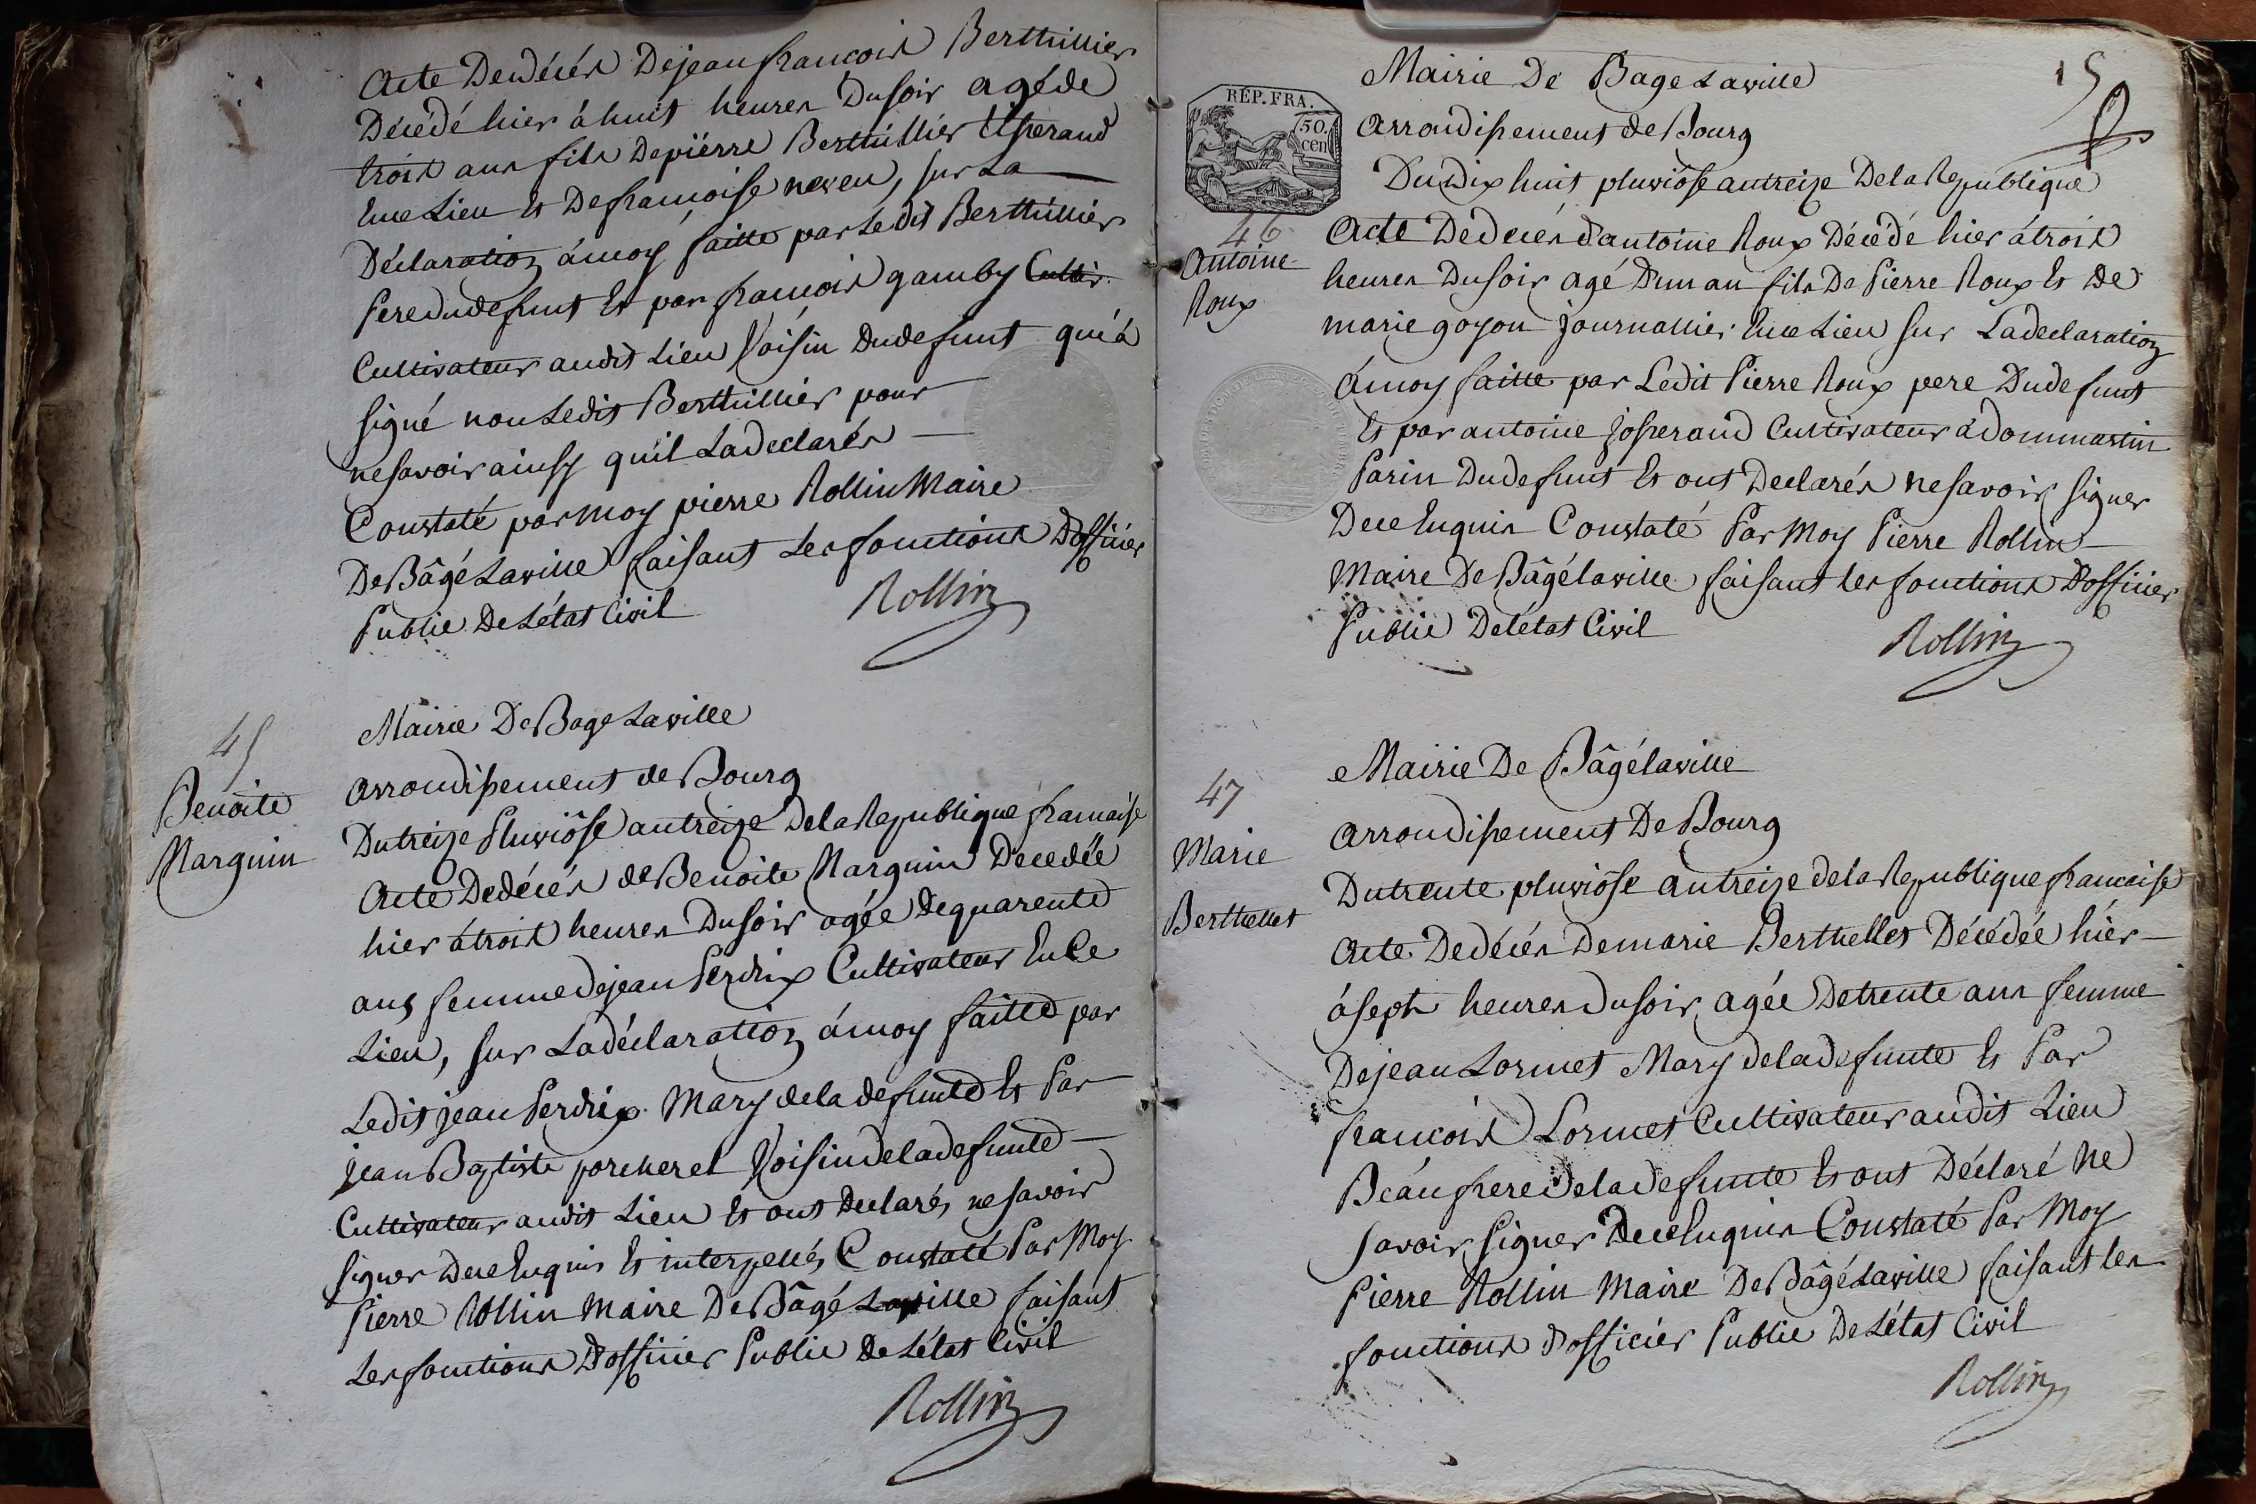 Acte De décés De jean francois Berthillier
Décédé hier á huit heures Du soir agé de
trois ans fils De piérre Berthillier tisserand
En ce Lieu Et De francoise neveu, sur La
Déclaration á moy faitte par Le dit Berthillier
Pere du defunt Et par francois gamby Cultiv.
Cultivateur audit Lieu Voisin Du defunt qui á
signé non Ledit Berthillier pour
ne savoir ainsy qu'il La declarés
Constaté par moy pierre Rollin Maire
De Bâgé Laville faisant Les fonctions D'officier
Public De L'état Civil
Rollin
45
Benoite
Marguin
Mairie De Bage Laville
arrondissement de Bourg
Du treize Pluviôse an treize De la Republique francaise
Acte De décés de Benoite Marguin Decedée
hier á trois heures Du soir agée De quarente
ans femme De jean Perdrix Cultivateur En Ce
Lieu, sur La déclaration á moy faitte par
Le dit jean Perdrix Mary de la defunte Et Par
jean Baptiste porcherel Voisin de la defunte
Cultivateur audit Lieu Et ont Declarés ne savoir
signer De ce Enquis Et interpellés Constaté Par Moy
Pierre Rollin Maire De Bâgé Laville faisant
Les fonctions D'officier Public De L'état Civil
Rollin
15
RÉP. FRA.
50.
cen
46
Antoine
Roux
Mairie De Bage Laville
arrondissement de Bourg
Du Dix huit pluviôse an treize De la Republique
Acte De decés d'antoine Roux Décédé hier á trois
heures Du soir agé D'un an fils De Pierre Roux Et De
marie goyon journallier En ce Lieu sur La declaration
á moy faitte par Ledit Pierre Roux pere Du defunt
Et par antoine josserand Cultivateur á Dommartin
Parin Du defunt Et ont Declarés ne savoir signer
De ce Enquis Constaté Par Moy Pierre Rollin
Maire De Bâgé laville faisant les fonctions D'officier
Public De l'état Civil
Rollin
47
Marie
Berthellet
Mairie De Bâgé laville
arrondissement De Bourg
Du trente pluviôse an treize de la Republique francaise
Acte De décés De marie Berthellet Décédée hiér
á sept heures du soir agée De trente ans femme
De jean Lormet Mary de la defunte Et Par
francois Lormet Cultivateur audit Lieu
Béau frere De la defunte Et ont Déclaré ne
savoir signer De ce Enquis Constaté Par Moy
Pierre Rollin Maire De Bâgé Laville faisant les
fonctions D'officiér Public De L'état Civil
Rollin